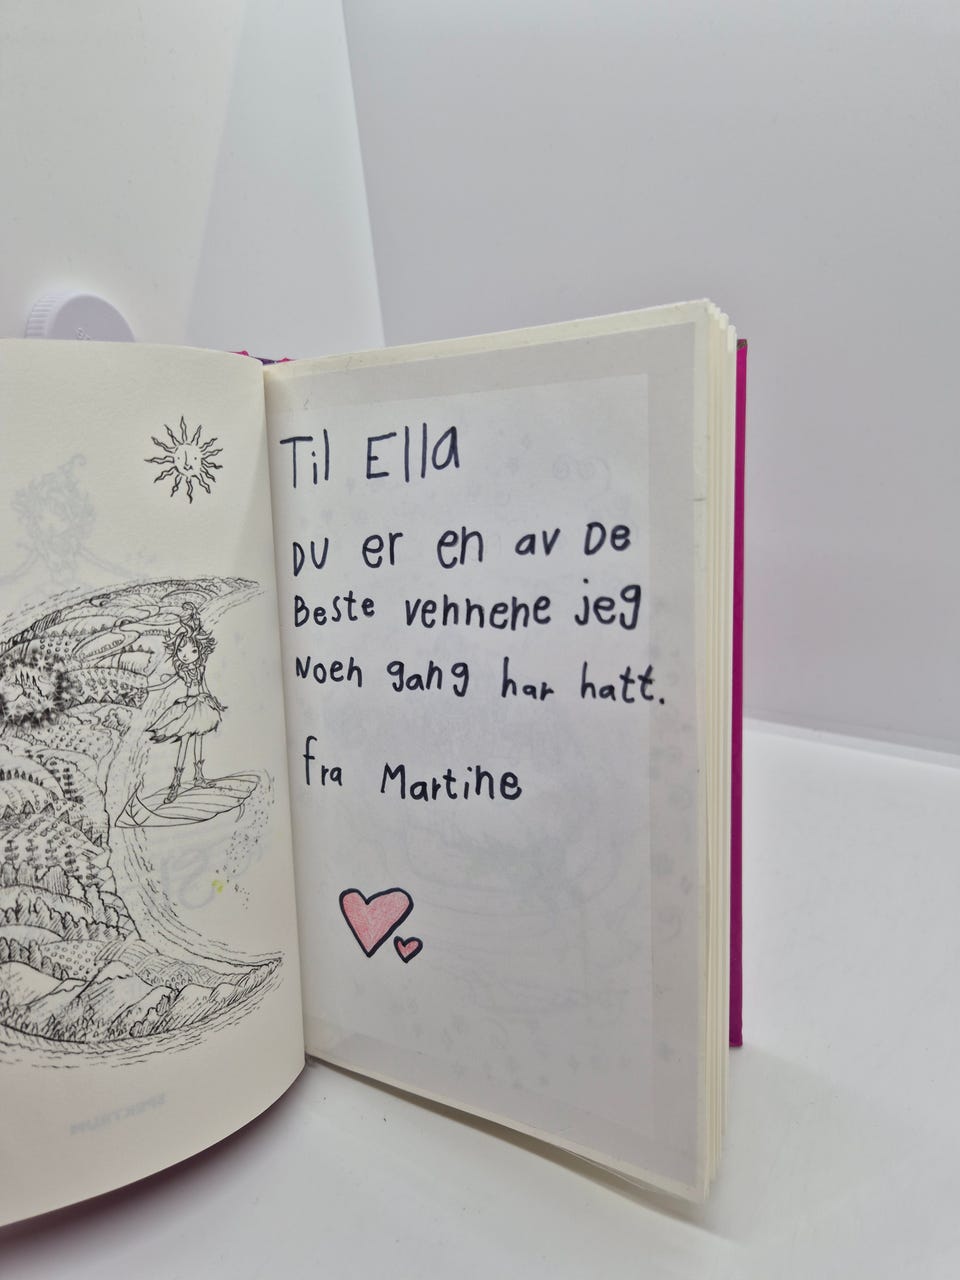 Til Ella
DU er en av De
Beste vennene jeg
Noen gang har hatt.
fra Martine